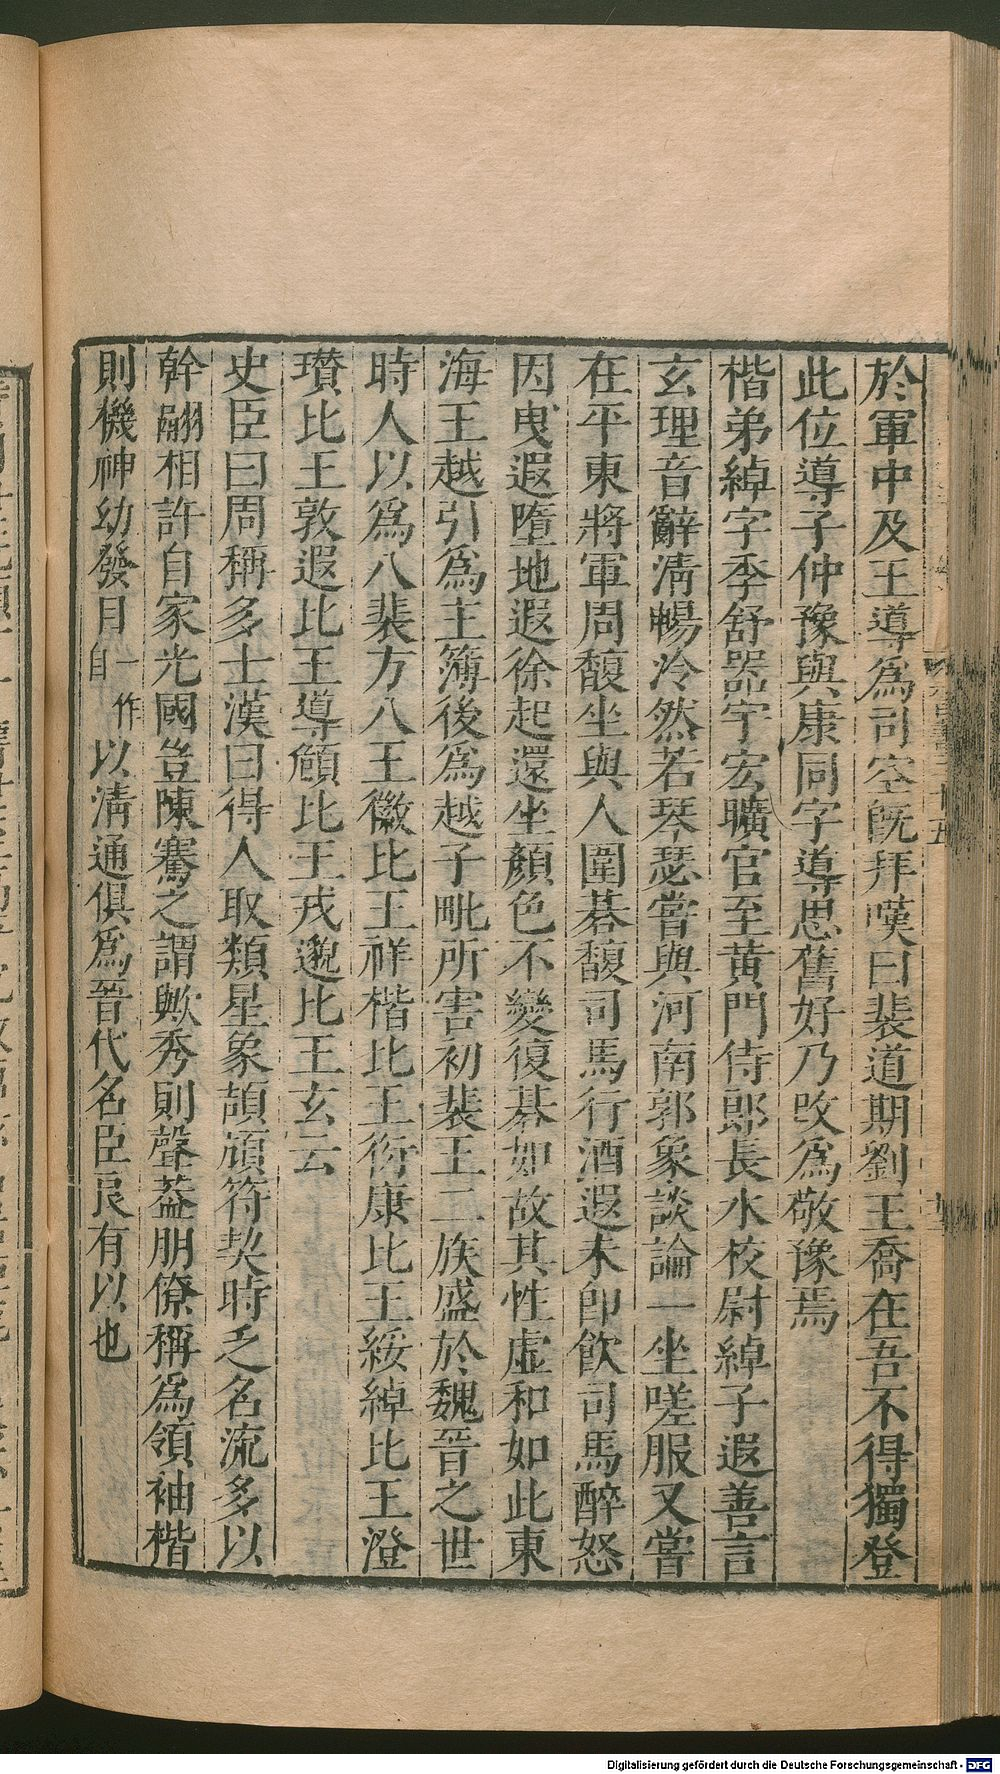 於軍中及王導爲司空旣拜嘆曰裴道期劉王喬在吾不得獨登
此位導子仲豫與康同字導思舊好乃攺爲敬豫焉
楷弟綽字季舒器宇宏曠官至黃門侍郎長水校尉綽子遐善言
玄理音辭淸暢泠然若琴瑟嘗與河南郭象談論一坐嗟服又嘗
在平東將軍周馥坐與人圍碁馥司馬行酒遐未卽飮司馬醉怒
因曳遐墮地遐徐起還坐顏色不變復碁如故其性虛和如此東
海王越引爲主簿後爲越子毗所害初裴王二族盛於魏晉之世
時人以爲八裴方八王徽比王祥楷比王衍康比王綏綽比王澄
瓚比王敦遐比王導頠比王戎邈比王玄云
史臣曰周稱多士漢曰得人取類星象頡頏符契時乏名流多以
幹翮相許自家光國豈陳騫之謂歟秀則聲蓋朋僚稱爲領袖楷
則機神幼發目一作自以淸通俱爲晉代名臣良有以也
Digitalisierung gefördert durch die Deutsche Forschungsgemeinschaft - DFG